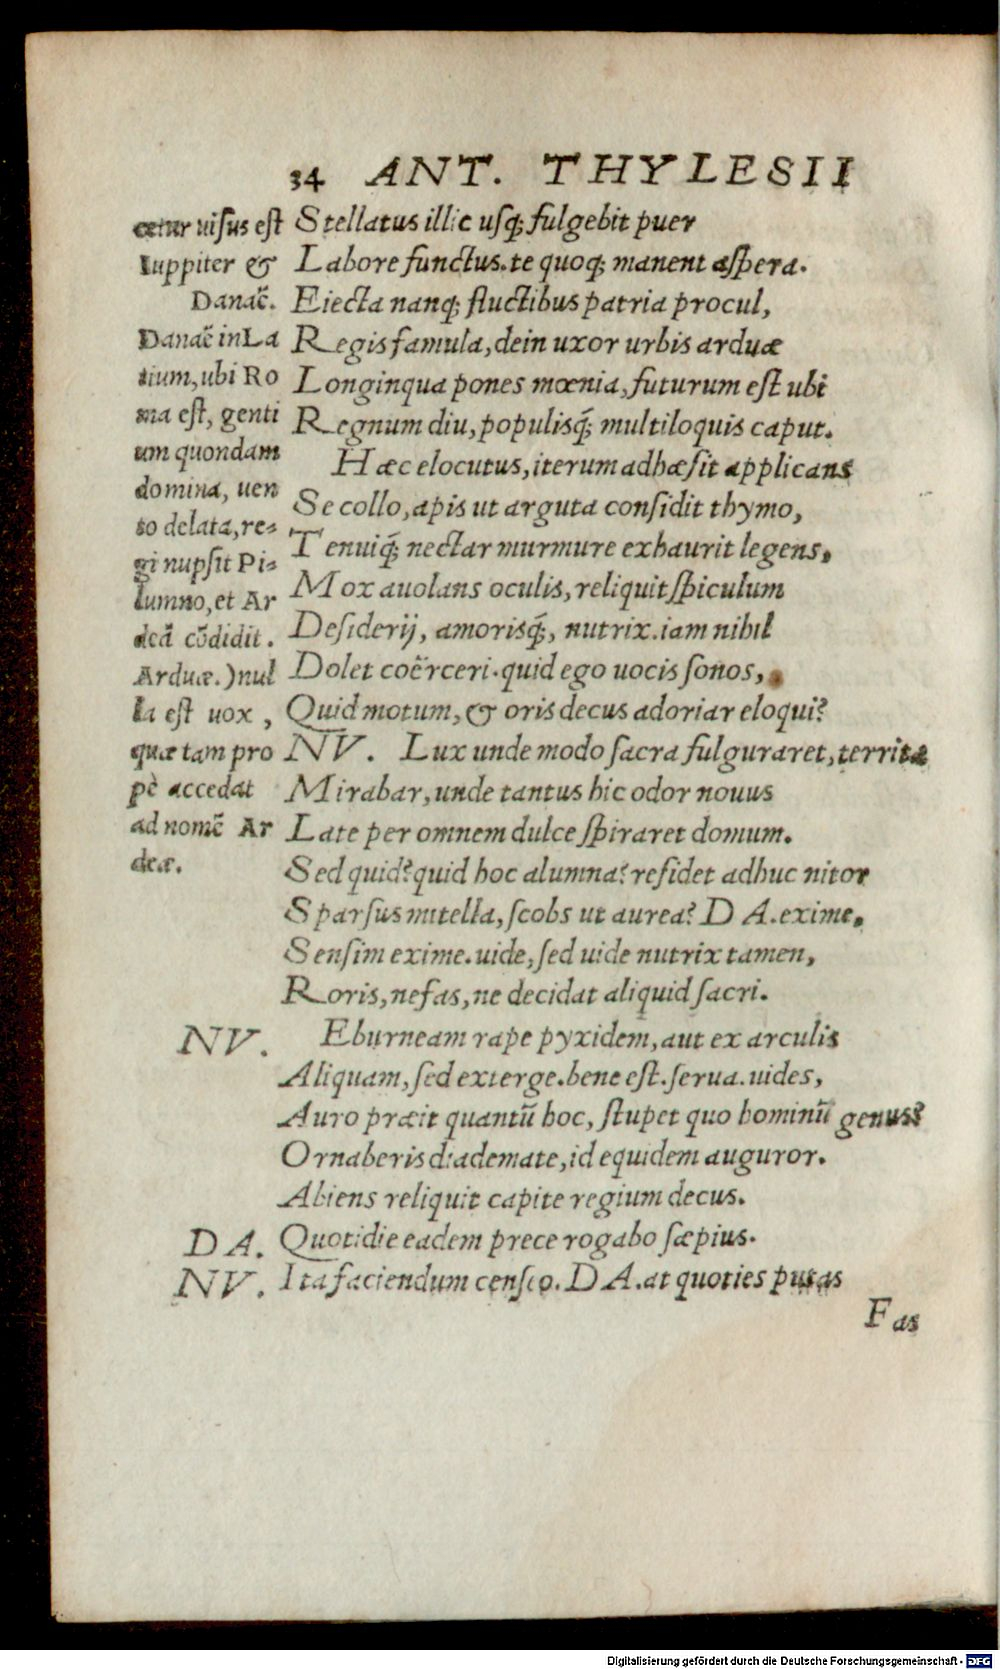 34 ANT. THYLESII
cetur uisus est
Iuppiter &
Danaē.
Danaē in La
tium, ubi Ro
ma est, genti
um quondam
domina, uen
to delata, re-
gi nupsit Pi-
lumno, et Ar
deā cōdidit.
Arduæ.) nul
la est uox,
quæ tam pro
pè accedat
ad nomē Ar
deæ.
Stellatus illic usq; fulgebit puer
Labore functus. te quoq; manent aspera.
Eiecta nanq; fluctibus patria procul,
Regis famula, dein uxor urbis arduæ
Longinqua pones mœnia, futurum est ubi
Regnum diu, populisq́; multiloquis caput.
Hæc elocutus, iterum adhæsit applicans
Se collo, apis ut arguta considit thymo,
Tenuiq́; nectar murmure exhaurit legens,
Mox auolans oculis, reliquit spiculum
Desiderij, amorisq́;, nutrix. iam nihil
Dolet coërceri. quid ego uocis sonos,
Quid motum, & oris decus adoriar eloqui?
NV. Lux unde modo sacra fulguraret, territa
Mirabar, unde tantus hic odor nouus
Late per omnem dulce spiraret domum.
Sed quid? quid hoc alumna? residet adhuc nitor
Sparsus mitella, scobs ut aurea? DA. exime,
Sensim exime. uide, sed uide nutrix tamen,
Roris, nefas, ne decidat aliquid sacri.
NV. Eburneam rape pyxidem, aut ex arculis
Aliquam, sed exterge. bene est. serua. uides,
Auro præit quantū hoc, stupet quo hominū genus?
Ornaberis diademate, id equidem auguror.
Abiens reliquit capite regium decus.
DA. Quotidie eadem prece rogabo sæpius.
NV. Ita faciendum censeo. DA. at quoties putas
Fas
Digitalisierung gefördert durch die Deutsche Forschungsgemeinschaft - DFG